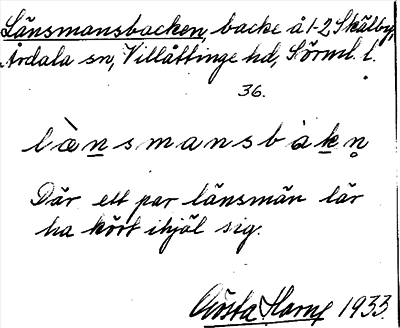 Länsmansbacken, backe å 1-2 Skälby,
Årdala sn, Villåttinge hd, Sörml. l.
36.
lὰnsmansbàkn̥
Där ett par länsmän lär
ha kört ihjäl sig.
Gösta Harne 1933.